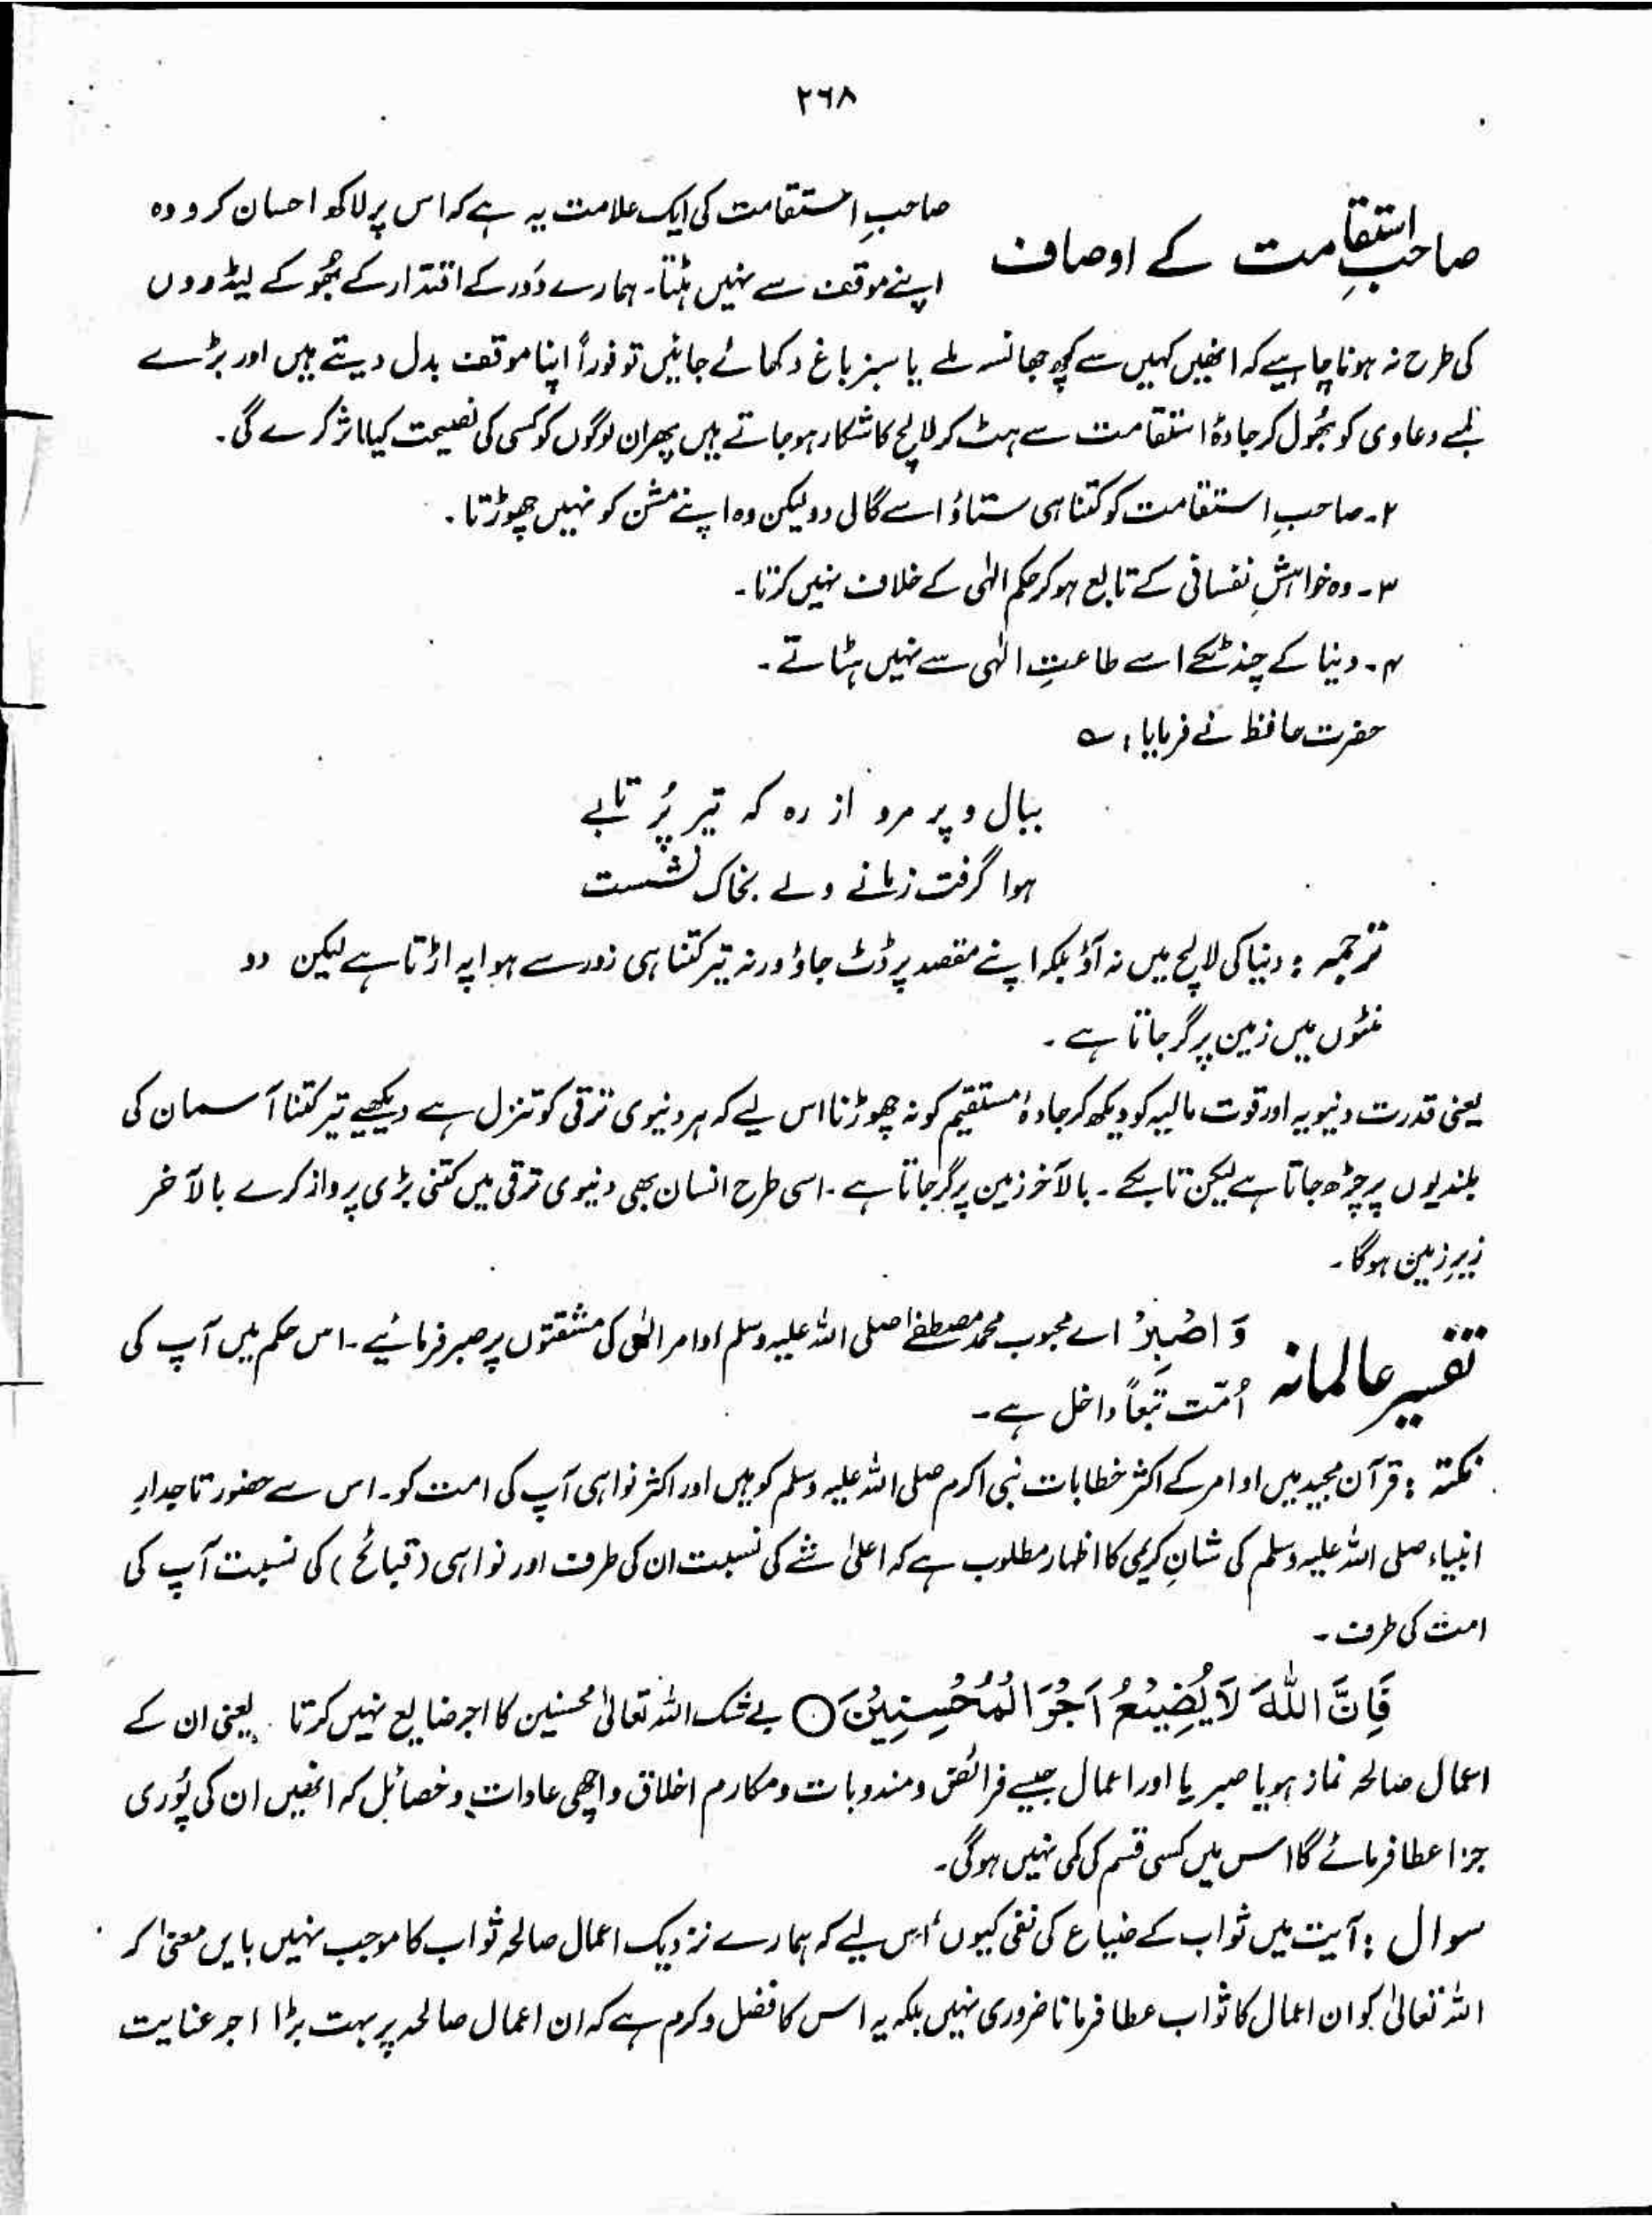 ۲۶۸
صاحبِ استقامت کے اوصاف
صاحبِ استقامت کی ایک علامت یہ ہے کہ اس پر لاکھ احسان کرو وہ
اپنے موقف سے نہیں ہٹتا۔ ہمارے دَور کے اقتدار کے بھُوکے لیڈروں
کی طرح نہ ہونا چاہیے کہ انھیں کہیں سے کچھ جھانسہ ملے یا سبز باغ دکھائے جائیں تو فوراً اپنا موقف بدل دیتے ہیں اور بڑے
لمبے دعاوی کو بھُول کر جادۂ استقامت سے ہٹ کر لالچ کا شکار ہو جاتے ہیں پھر ان لوگوں کو کسی کی نصیحت کیا اثر کرے گی۔
۲۔ صاحبِ استقامت کو کتنا ہی ستاؤ اسے گالی دو لیکن وہ اپنے مشن کو نہیں چھوڑتا۔
۳۔ وہ خواہشِ نفسانی کے تابع ہو کر حکم الٰہی کے خلاف نہیں کرتا۔
۴۔ دنیا کے چند ٹکے اسے طاعتِ الٰہی سے نہیں ہٹاتے۔
حضرت حافظ نے فرمایا: ؎
ببال و پر مرو از رہ کہ تیر پُر تابے
ہوا گرفت زمانے ولے بخاک نشست
ترجمہ: دنیا کی لالچ میں نہ آؤ بلکہ اپنے مقصد پر ڈٹ جاؤ ورنہ تیر کتنا ہی زور سے ہوا پہ اڑتا ہے لیکن دو
منٹوں میں زمین پر گر جاتا ہے۔
یعنی قدرت دنیویہ اور قوت مالیہ کو دیکھ کر جادۂ مستقیم کو نہ چھوڑنا اس لیے کہ ہر دنیوی ترقی کو تنزل ہے دیکھیے تیر کتنا آسمان کی
بلندیوں پر چڑھ جاتا ہے لیکن تا بکے۔ بالآخر زمین پر گر جاتا ہے۔ اسی طرح انسان بھی دنیوی ترقی میں کتنی بڑی پرواز کرے بالآخر
زیرِ زمین ہوگا۔
تفسیر عالمانہ
وَاصْبِرْ اے محبوب محمد مصطفےٰ صلی اللہ علیہ وسلم اوامر الٰہی کی مشقتوں پر صبر فرمائیے۔ اس حکم میں آپ کی
اُمّت تبعاً داخل ہے۔
نکتہ: قرآن مجید میں اوامر کے اکثر خطابات نبی اکرم صلی اللہ علیہ وسلم کو ہیں اور اکثر نواہی آپ کی امت کو۔ اس سے حضور تاجدارِ
انبیاء صلی اللہ علیہ وسلم کی شانِ کریمی کا اظہار مطلوب ہے کہ اعلیٰ شے کی نسبت ان کی طرف اور نواہی (قبائح) کی نسبت آپ کی
امت کی طرف۔
فَاِنَّ اللّٰهَ لَا یُضِیْعُ اَجْرَ الْمُحْسِنِیْنَ○ بے شک اللہ تعالیٰ محسنین کا اجر ضایع نہیں کرتا۔ یعنی ان کے
اعمال صالحہ نماز ہو یا صبر یا اور اعمال جیسے فرائض و مندوبات و مکارم اخلاق و اچھی عادات و خصائل کہ انھیں ان کی پُوری
جزا عطا فرمائے گا اس میں کسی قسم کی کمی نہیں ہوگی۔
سوال: آیت میں ثواب کے ضیاع کی نفی کیوں اس لیے کہ ہمارے نزدیک اعمال صالحہ ثواب کا موجب نہیں بایں معنیٰ کہ
اللہ تعالیٰ کو ان اعمال کا ثواب عطا فرمانا ضروری نہیں بلکہ یہ اس کا فضل و کرم ہے کہ ان اعمال صالحہ پر بہت بڑا اجر عنایت